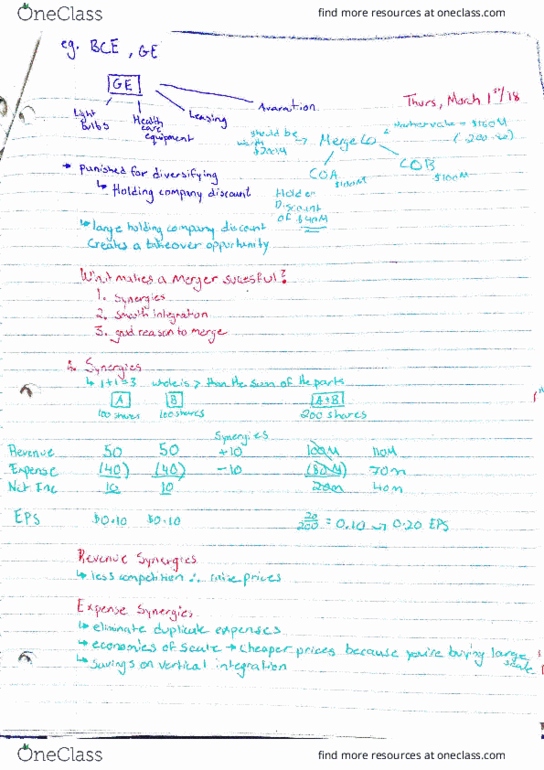 OneClass
find more resources at oneclass.com
eg. BCE, GE
GE
Thurs, March 1st/18
Light Bulbs
Health care equipment
Leasing
Aviation
should be worth $200M
Merge Co
Market value = $160M
(200-40)
COA
$100M
COB
$100M
→ punished for diversifying
↳ Holding company discount
Holden Discount of $40M
↳ large holding company discount
creates a takeover opportunity
What makes a Merger sucessful?
1. Synergies
2. smooth integration
3. good reason to merge
1. Synergies
↳ 1+1=3 whole is > than the sum of the parts
A B A+B
100 shares 100 shares 200 shares
Synergies
Revenue 50 50 +10 100M 110M
Expense (40) (40) -10 (80M) 70m
Net Inc 10 10 20m 40m
EPS $0.10 $0.10 20/200 = 0.10 → 0.20 EPS
Revenue Synergies
↳ less competition ∴ raise prices
Expense Synergies
↳ eliminate duplicate expenses
↳ economies of scale → cheaper prices because you're buying large scale
↳ savings on vertical integration
OneClass
find more resources at oneclass.com